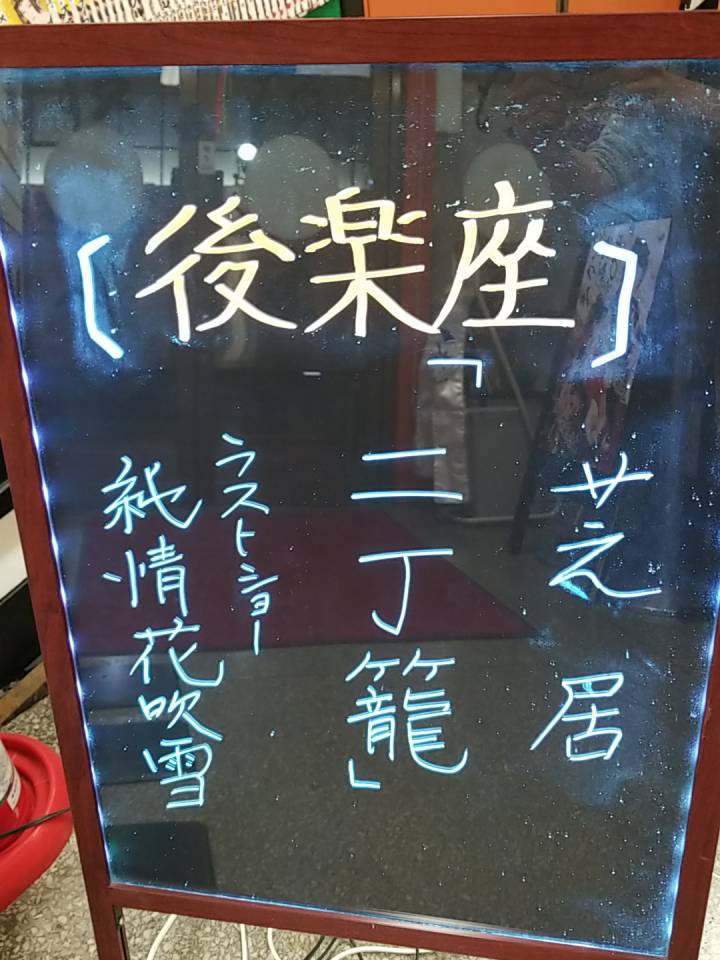 〔後楽座〕
芝居
「二丁籠」
ラストショー
純情花吹雪